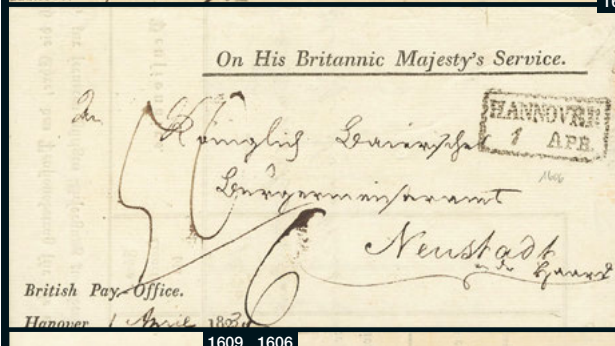 On His Britannic Majesty's Service.
HANNOVER
1 APR.
An
Königlich Baiersches
Bürgermeisteramt
Neustadt
an der Haardt
British Pay-Office.
Hanover 1 April
1606
1609 1606